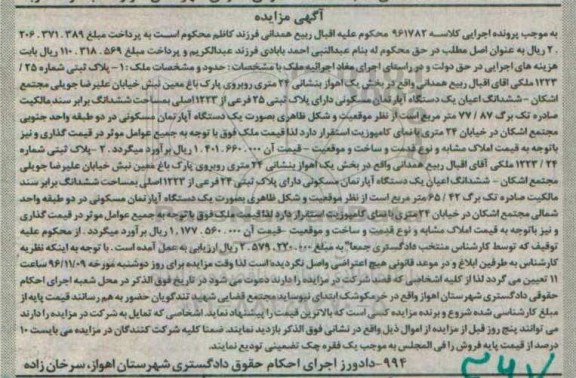 آگهی مزایده
به موجب پرونده اجرایی کلاسه ۹۶۱۷۸۲ محکوم علیه اقبال ربیع همدانی فرزند کاظم محکوم است به پرداخت مبلغ ۲۰۶.۳۷۱.۳۸۹
۲.۰ ریال به عنوان اصل مطلب در حق محکوم له بنام عبدالنبی احمد بابادی فرزند عبدالکریم و پرداخت مبلغ ۱۱۰.۳۱۸.۵۶۹ ریال بابت
هزینه های اجرایی در حق دولت و در راستای اجرای مفاد اجرائیه ملک با مشخصات : حدود و مشخصات ملک : ۱- پلاک ثبتی شماره ۲۵ /
۱۲۲۳ ملکی آقای اقبال ربیع همدانی واقع در بخش یک اهواز بنشانی ۲۴ متری روبروی پارک باغ معین نبش خیابان علیرضا جویلی مجتمع
اشکان - ششدانگ اعیان یک دستگاه آپارتمان مسکونی دارای پلاک ثبتی ۲۵ فرعی از ۱۲۲۳ اصلی بمساحت ششدانگ برابر سند مالکیت
صادره تک برگ ۸۷ / ۷۷ متر مربع است از نظر موقعیت و شکل ظاهری بصورت یک دستگاه آپارتمان مسکونی در دو طبقه واحد جنوبی
مجتمع اشکان در خیابان ۲۴ متری با نمای کامپوزیت استقرار دارد لذا قیمت ملک فوق با توجه به جمیع عوامل موثر در قیمت گذاری و نیز
باتوجه به قیمت املاک مشابه و نوع قدمت و ساخت و موقعیت - قیمت آن ۱.۴۰۱.۶۶۰.۰۰۰ ریال برآورد میگردد . ۲- پلاک ثبتی شماره
۲۴ / ۱۲۲۳ ملکی آقای اقبال ربیع همدانی واقع در بخش یک اهواز بنشانی ۲۴ متری روبروی پارک باغ معین نبش خیابان علیرضا جویلی
مجتمع اشکان - ششدانگ اعیان یک دستگاه آپارتمان مسکونی دارای پلاک ثبتی ۲۴ فرعی از ۱۲۲۳ اصلی بمساحت ششدانگ برابر سند
مالکیت صادره تک برگ ۴۲ / ۶۵ متر مربع است از نظر موقعیت و شکل ظاهری بصورت یک دستگاه آپارتمان مسکونی در دو طبقه واحد
شمالی مجتمع اشکان در خیابان ۲۴ متری با نمای کامپوزیت استقرار دارد لذا قیمت ملک فوق با توجه به جمیع عوامل موثر در قیمت گذاری
و نیز باتوجه به قیمت املاک مشابه و نوع قدمت و ساخت و موقعیت - قیمت آن ۱.۱۷۷.۵۶۰.۰۰۰ ریال برآورد میگردد . از محکوم علیه
توقیف که توسط کارشناس منتخب دادگستری جمعاً به مبلغ ۲.۵۷۹.۲۲۰.۰۰۰ ریال ارزیابی به عمل آمده است . با توجه به اینکه نظریه
کارشناس به طرفین ابلاغ و در موعد قانونی هیچ اعتراضی واصل نگردیده است لذا وقت مزایده برای روز دوشنبه مورخه ۹۶/۱۱/۰۹ ساعت
۱۱ تعیین می گردد لذا از کلیه اشخاصی که قصد شرکت در مزایده را دارند دعوت می شود در تاریخ فوق الذکر در محل شعبه اجرای احکام
حقوقی دادگستری شهرستان اهواز واقع در خرمکوشک ابتدای نیوساید مجتمع قضایی شهید تندگویان حضور به هم رسانند قیمت پایه از
مبلغ کارشناسی شده شروع و برنده مزایده کسی است که بالاترین قیمت را پیشنهاد نماید. اشخاصی که تمایل به شرکت در مزایده را دارند
می توانند پنج روز قبل از مزایده از اموال ذیل واقع در نشانی فوق الذکر بازدید نمایند. ضمنا کلیه شرکت کنندگان در مزایده می بایست ۱۰
درصد از قیمت پایه فروش را فی المجلس به موجب یک فقره چک تضمینی تودیع نمایند.
۹۹۴- دادورز اجرای احکام حقوق دادگستری شهرستان اهواز، سرخان زاده